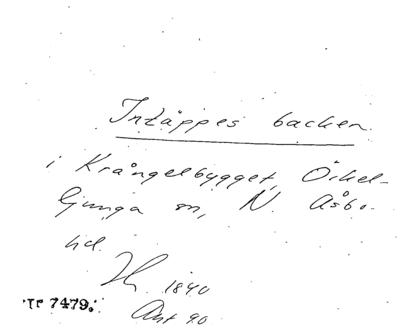 Intäppes backen
i Krångelbygget, Örkel-
ljunga sn, N. Åsbo
hd.
1840
Ant 90
nr 7479.